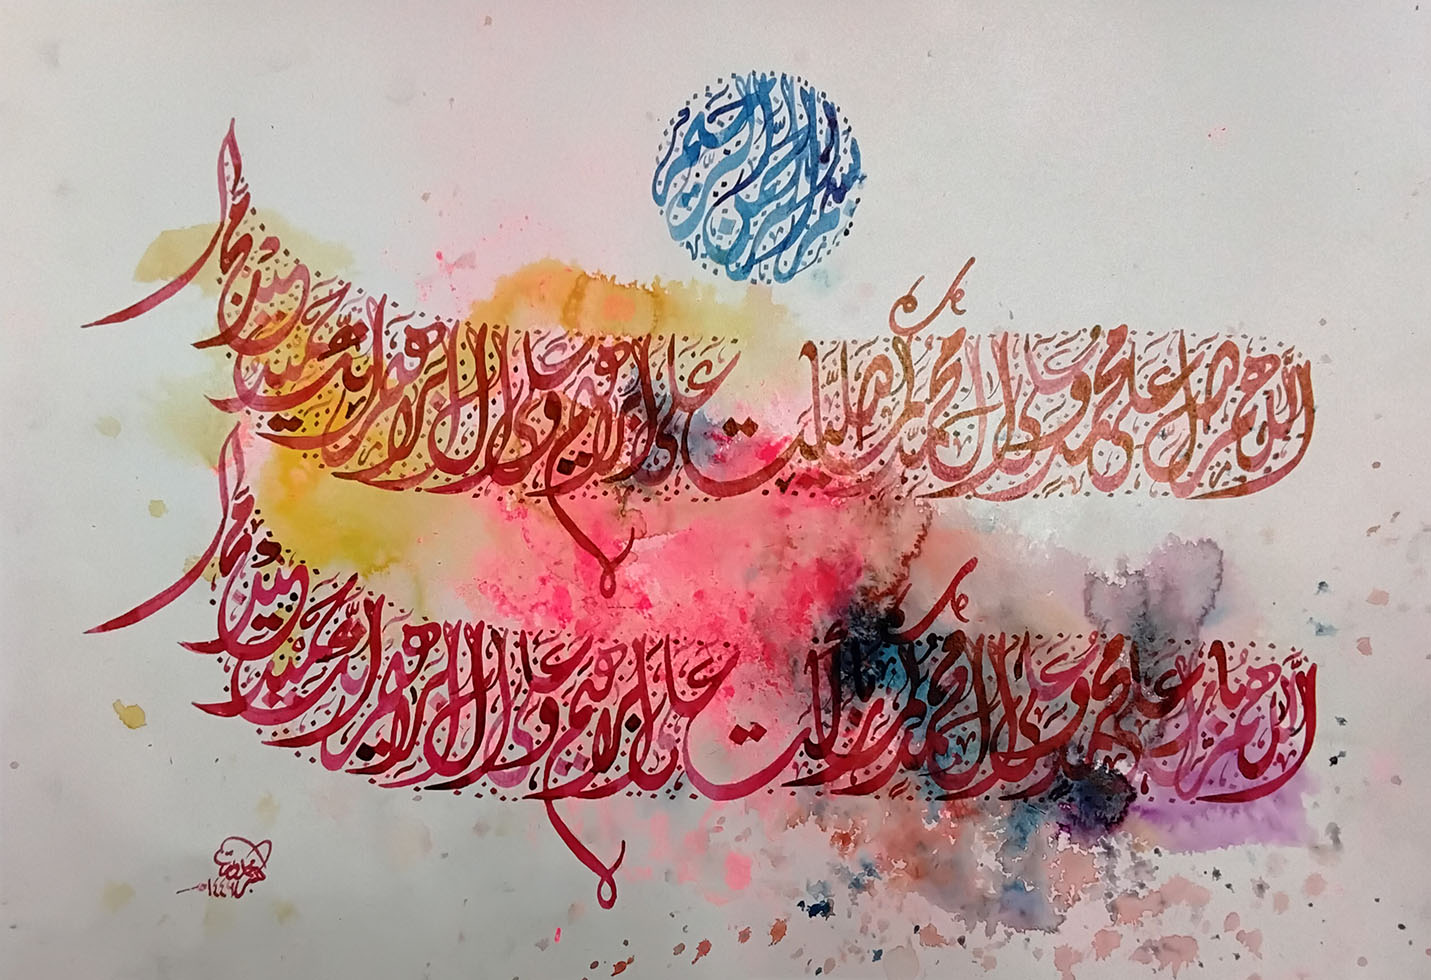 بسم الله الرحمن الرحيم
اللهم صل على محمد وعلى آل محمد كما صليت على إبراهيم وعلى آل إبراهيم إنك حميد مجيد
اللهم بارك على محمد وعلى آل محمد كما باركت على إبراهيم وعلى آل إبراهيم إنك حميد مجيد